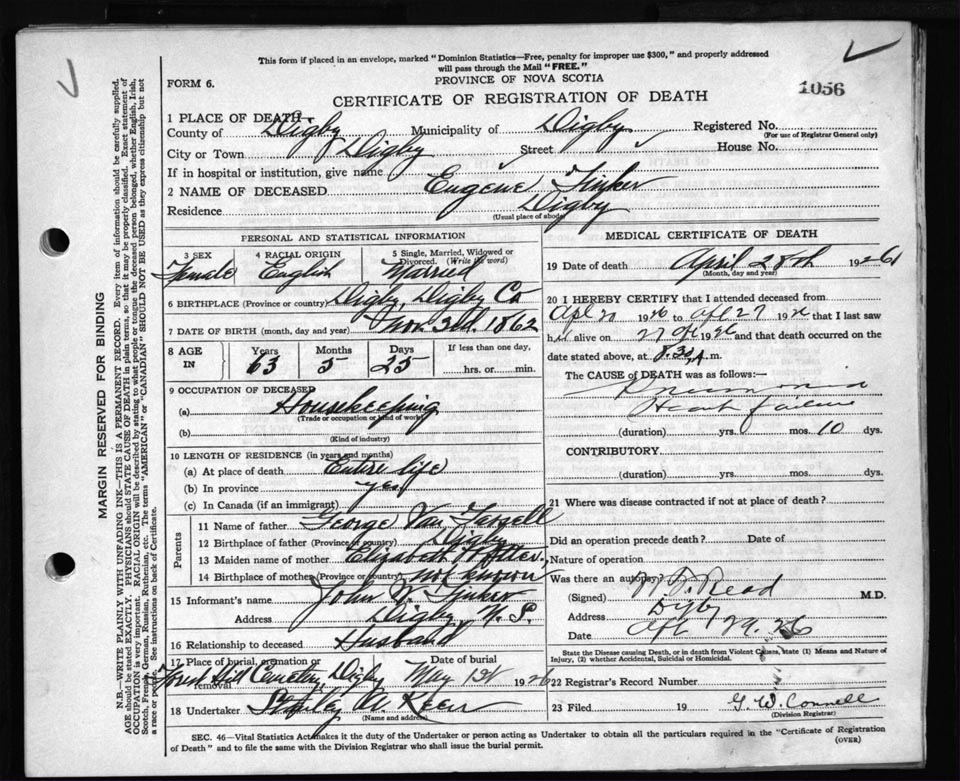 This form if placed in an envelope, marked "Dominion Statistics—Free, penalty for improper use $300," and properly addressed
will pass through the Mail "FREE."
FORM 6.
PROVINCE OF NOVA SCOTIA
1056
CERTIFICATE OF REGISTRATION OF DEATH
1 PLACE OF DEATH—
County of Digby Municipality of Digby Registered No.
(For use of Registrar General only)
City or Town Digby Street House No.
If in hospital or institution, give name
2 NAME OF DECEASED Eugene Tinker
Residence Digby
(Usual place of abode)
PERSONAL AND STATISTICAL INFORMATION
3 SEX 4 RACIAL ORIGIN 5 Single, Married, Widowed or Divorced. (Write the word)
Female English Married
6 BIRTHPLACE (Province or country) Digby, Digby Co
7 DATE OF BIRTH (month, day and year) Nov 3rd. 1862
8 AGE IN Years Months Days If less than one day,
63 5 25 hrs. or min.
9 OCCUPATION OF DECEASED
(a) Housekeeping
(Trade or occupation or kind of work)
(b)
(Kind of industry)
10 LENGTH OF RESIDENCE (in years and months)
(a) At place of death Entire life
(b) In province yes
(c) In Canada (if an immigrant)
Parents
11 Name of father George Van
12 Birthplace of father (Province or country) Digby
13 Maiden name of mother Elizabeth
14 Birthplace of mother (Province or country) not known
15 Informant's name John Tinker
Address Digby, N. S.
16 Relationship to deceased Husband
17 Place of burial, cremation or removal Date of burial
Forest Hill Cemetery Digby May 1st 1926
18 Undertaker
(Name and address)
MEDICAL CERTIFICATE OF DEATH
19 Date of death April 28th 1926
(Month, day and year)
20 I HEREBY CERTIFY that I attended deceased from
Apl 20 1926 to Apl 27 1926 that I last saw
her alive on 27 Apl 1926 and that death occurred on the
date stated above, at 8.30 A. m.
The CAUSE of DEATH was as follows:—
Pneumonia
Heart failure
(duration) yrs. mos. 10 dys.
CONTRIBUTORY
(duration) yrs. mos. dys.
21 Where was disease contracted if not at place of death?
Did an operation precede death? Date of
Nature of operation
Was there an autopsy?
(Signed) Read M.D.
Address Digby
Date Apl 29. 26
State the Disease causing Death, or in death from Violent Causes, state (1) Means and Nature of
Injury, (2) whether Accidental, Suicidal or Homicidal.
22 Registrar's Record Number
23 Filed 19 G. W. Connell
(Division Registrar)
SEC. 46—Vital Statistics Act makes it the duty of the Undertaker or person acting as Undertaker to obtain all the particulars required in the "Certificate of Registration
of Death" and to file the same with the Division Registrar who shall issue the burial permit.
(OVER)
MARGIN RESERVED FOR BINDING
N.B.—WRITE PLAINLY WITH UNFADING INK—THIS IS A PERMANENT RECORD. Every item of information should be carefully supplied.
AGE should be stated EXACTLY. PHYSICIANS should STATE CAUSE OF DEATH in plain terms, so that it may be properly classified. Exact statement of
OCCUPATION is very important. RACIAL ORIGIN will be described by stating to what people or tongue the deceased person belonged, whether English, Irish,
Scotch, French, German, Russian, Ruthenian, etc. The terms "AMERICAN" or "CANADIAN" SHOULD NOT BE USED as they express citizenship but not
a race or people. See instructions on back of Certificate.